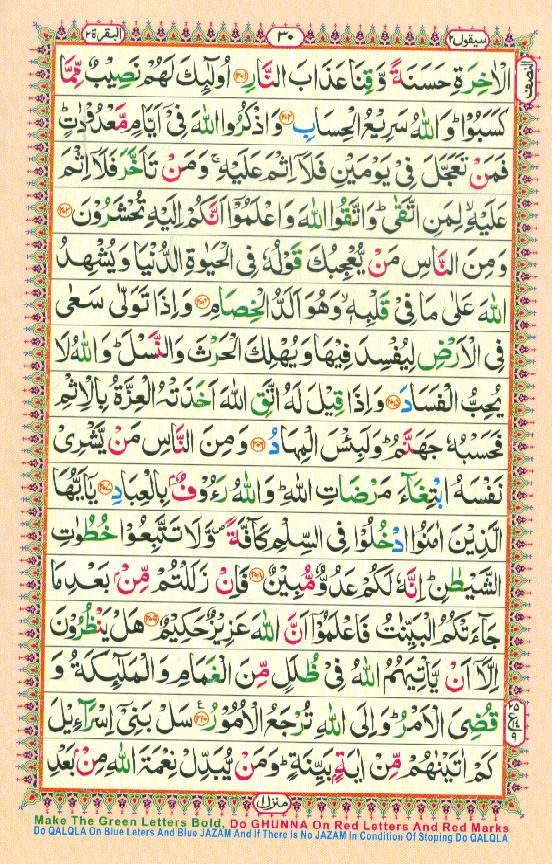 سيقول ٢
٣٠
البقرة ٢
النصف
الۡاٰخِرَةِ حَسَنَةً وَّقِنَا عَذَابَ النَّارِ ﴿۲۰۱﴾ اُولٰٓئِكَ لَهُمۡ نَصِيۡبٌ مِّمَّا
كَسَبُوۡا ؕ وَاللّٰهُ سَرِيۡعُ الۡحِسَابِ ﴿۲۰۲﴾ وَاذۡكُرُوا اللّٰهَ فِىۡٓ اَيَّامٍ مَّعۡدُوۡدٰتٍ ؕ
فَمَنۡ تَعَجَّلَ فِىۡ يَوۡمَيۡنِ فَلَاۤ اِثۡمَ عَلَيۡهِ ۚ وَمَنۡ تَاَخَّرَ فَلَاۤ اِثۡمَ
عَلَيۡهِ ۙ لِمَنِ اتَّقٰى ؕ وَاتَّقُوا اللّٰهَ وَاعۡلَمُوۡٓا اَنَّكُمۡ اِلَيۡهِ تُحۡشَرُوۡنَ ﴿۲۰۳﴾
وَمِنَ النَّاسِ مَنۡ يُّعۡجِبُكَ قَوۡلُهٗ فِى الۡحَيٰوةِ الدُّنۡيَا وَيُشۡهِدُ
اللّٰهَ عَلٰى مَا فِىۡ قَلۡبِهٖ ۙ وَهُوَ اَلَدُّ الۡخِصَامِ ﴿۲۰۴﴾ وَاِذَا تَوَلّٰى سَعٰى
فِى الۡاَرۡضِ لِيُفۡسِدَ فِيۡهَا وَيُهۡلِكَ الۡحَرۡثَ وَالنَّسۡلَ ؕ وَاللّٰهُ لَا
يُحِبُّ الۡفَسَادَ ﴿۲۰۵﴾ وَاِذَا قِيۡلَ لَهُ اتَّقِ اللّٰهَ اَخَذَتۡهُ الۡعِزَّةُ بِالۡاِثۡمِ
فَحَسۡبُهٗ جَهَنَّمُ ؕ وَلَبِئۡسَ الۡمِهَادُ ﴿۲۰۶﴾ وَمِنَ النَّاسِ مَنۡ يَّشۡرِىۡ
نَفۡسَهُ ابۡتِغَآءَ مَرۡضَاتِ اللّٰهِ ؕ وَاللّٰهُ رَءُوۡفٌۢ بِالۡعِبَادِ ﴿۲۰۷﴾ يٰٓاَيُّهَا
الَّذِيۡنَ اٰمَنُوا ادۡخُلُوۡا فِى السِّلۡمِ كَآفَّةً ۪ وَّلَا تَتَّبِعُوۡا خُطُوٰتِ
الشَّيۡطٰنِ ؕ اِنَّهٗ لَكُمۡ عَدُوٌّ مُّبِيۡنٌ ﴿۲۰۸﴾ فَاِنۡ زَلَلۡتُمۡ مِّنۡۢ بَعۡدِ مَا
جَآءَتۡكُمُ الۡبَيِّنٰتُ فَاعۡلَمُوۡٓا اَنَّ اللّٰهَ عَزِيۡزٌ حَكِيۡمٌ ﴿۲۰۹﴾ هَلۡ يَنۡظُرُوۡنَ
اِلَّاۤ اَنۡ يَّاۡتِيَهُمُ اللّٰهُ فِىۡ ظُلَلٍ مِّنَ الۡغَمَامِ وَالۡمَلٰٓئِكَةُ وَ
قُضِىَ الۡاَمۡرُ ؕ وَاِلَى اللّٰهِ تُرۡجَعُ الۡاُمُوۡرُ ﴿۲۱۰﴾ سَلۡ بَنِىۡٓ اِسۡرَآءِيۡلَ
كَمۡ اٰتَيۡنٰهُمۡ مِّنۡ اٰيَةٍۢ بَيِّنَةٍ ؕ وَمَنۡ يُّبَدِّلۡ نِعۡمَةَ اللّٰهِ مِنۡۢ بَعۡدِ
منزل ١
Make The Green Letters Bold, Do GHUNNA On Red Letters And Red Marks
Do QALQLA On Blue Leters And Blue JAZAM And If There Is No JAZAM In Condition Of Stoping Do QALQLA